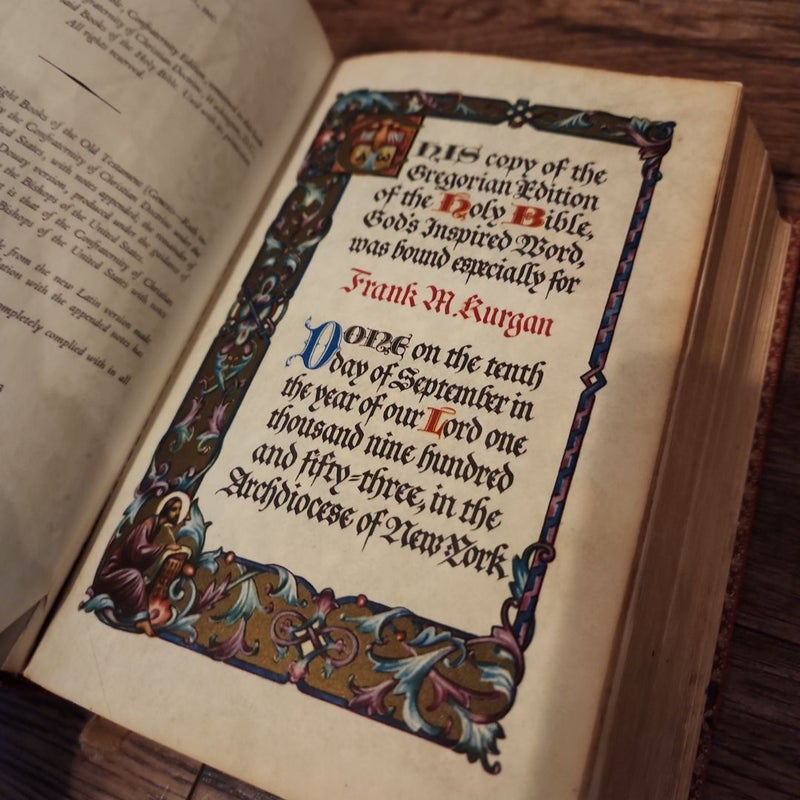 All rights reserved.
of the Holy Bible. Used with permission
Books of the Old Testament
the Confraternity of Christian Doctrine
United States, with notes appended, the
Douay version, produced under the guidance of
the Bishops of the United States.
is that of the Confraternity of Christian
Bishops of the United States with notes
from the new Latin version made
with the appended notes has
completely complied with in all
THIS copy of the
Gregorian Edition
of the Holy Bible,
God's Inspired Word,
was bound especially for
Frank M. Kurgan
DONE on the tenth
day of September in
the year of our Lord one
thousand nine hundred
and fifty-three, in the
Archdiocese of New York